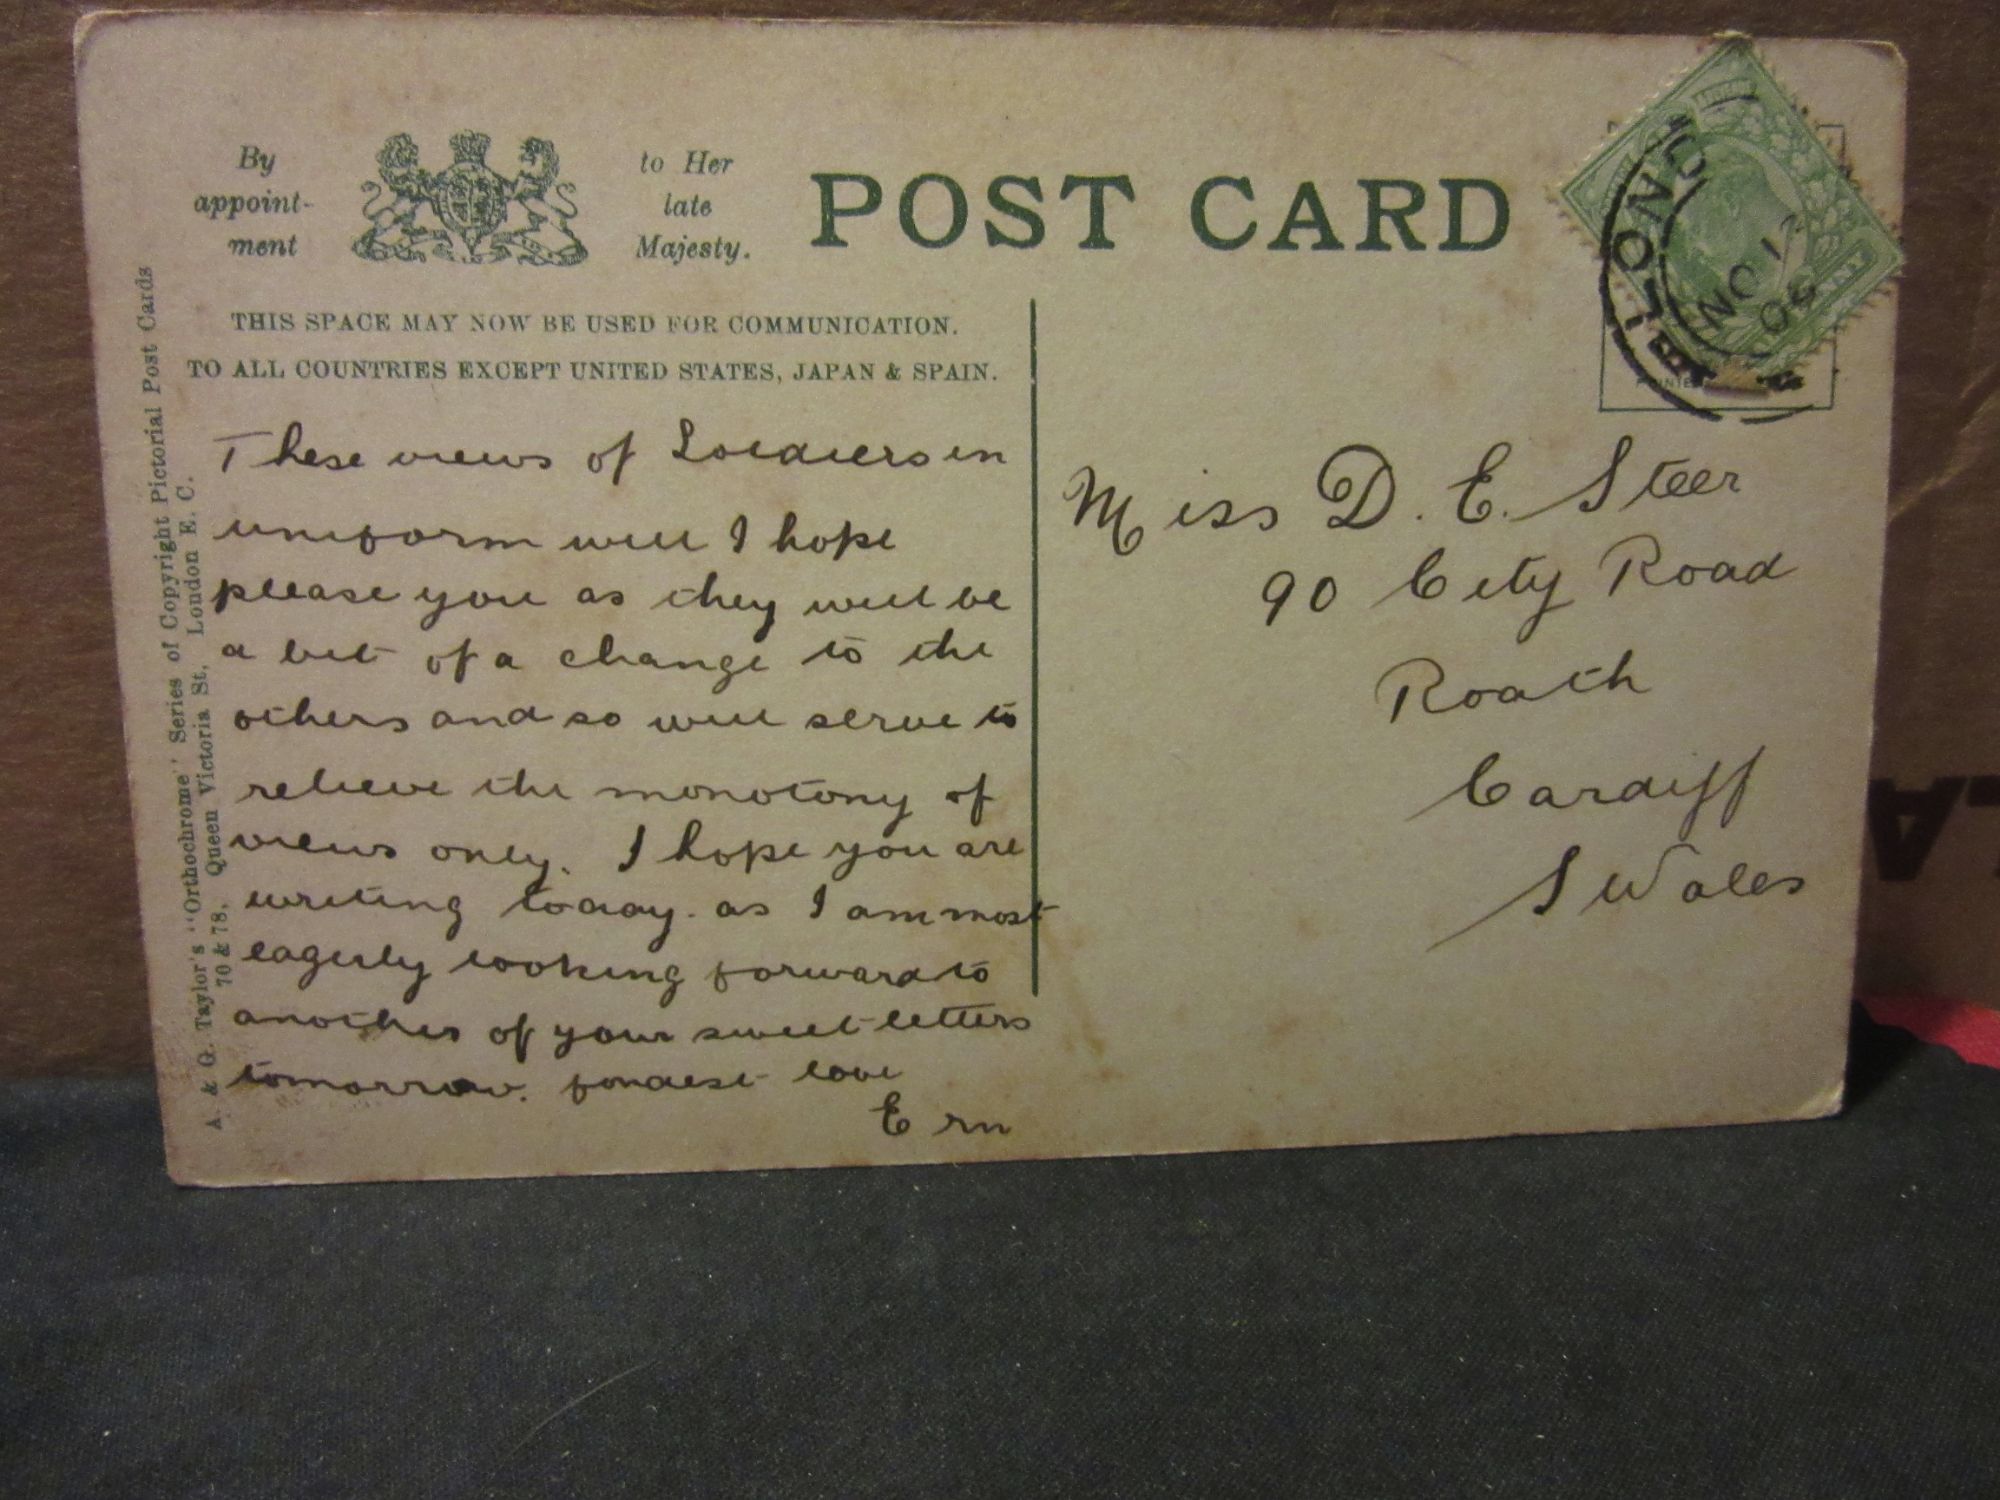 By
appoint-
ment
to Her
late
Majesty.
POST CARD
THIS SPACE MAY NOW BE USED FOR COMMUNICATION.
TO ALL COUNTRIES EXCEPT UNITED STATES, JAPAN & SPAIN.
A. & G. Taylor's "Orthochrome" Series of Copyright Pictorial Post Cards
70 & 78, Queen Victoria St, London E. C.
These views of Soldiers in
uniform will I hope
please you as they will be
a bit of a change to the
others and so will serve to
relieve the monotony of
views only. I hope you are
writing today. as I am most
eagerly looking forward to
another of your sweet letters
tomorrow. fondest love
Ern
Miss D. E. Steer
90 City Road
Roath
Cardiff
S Wales
NO 12
06